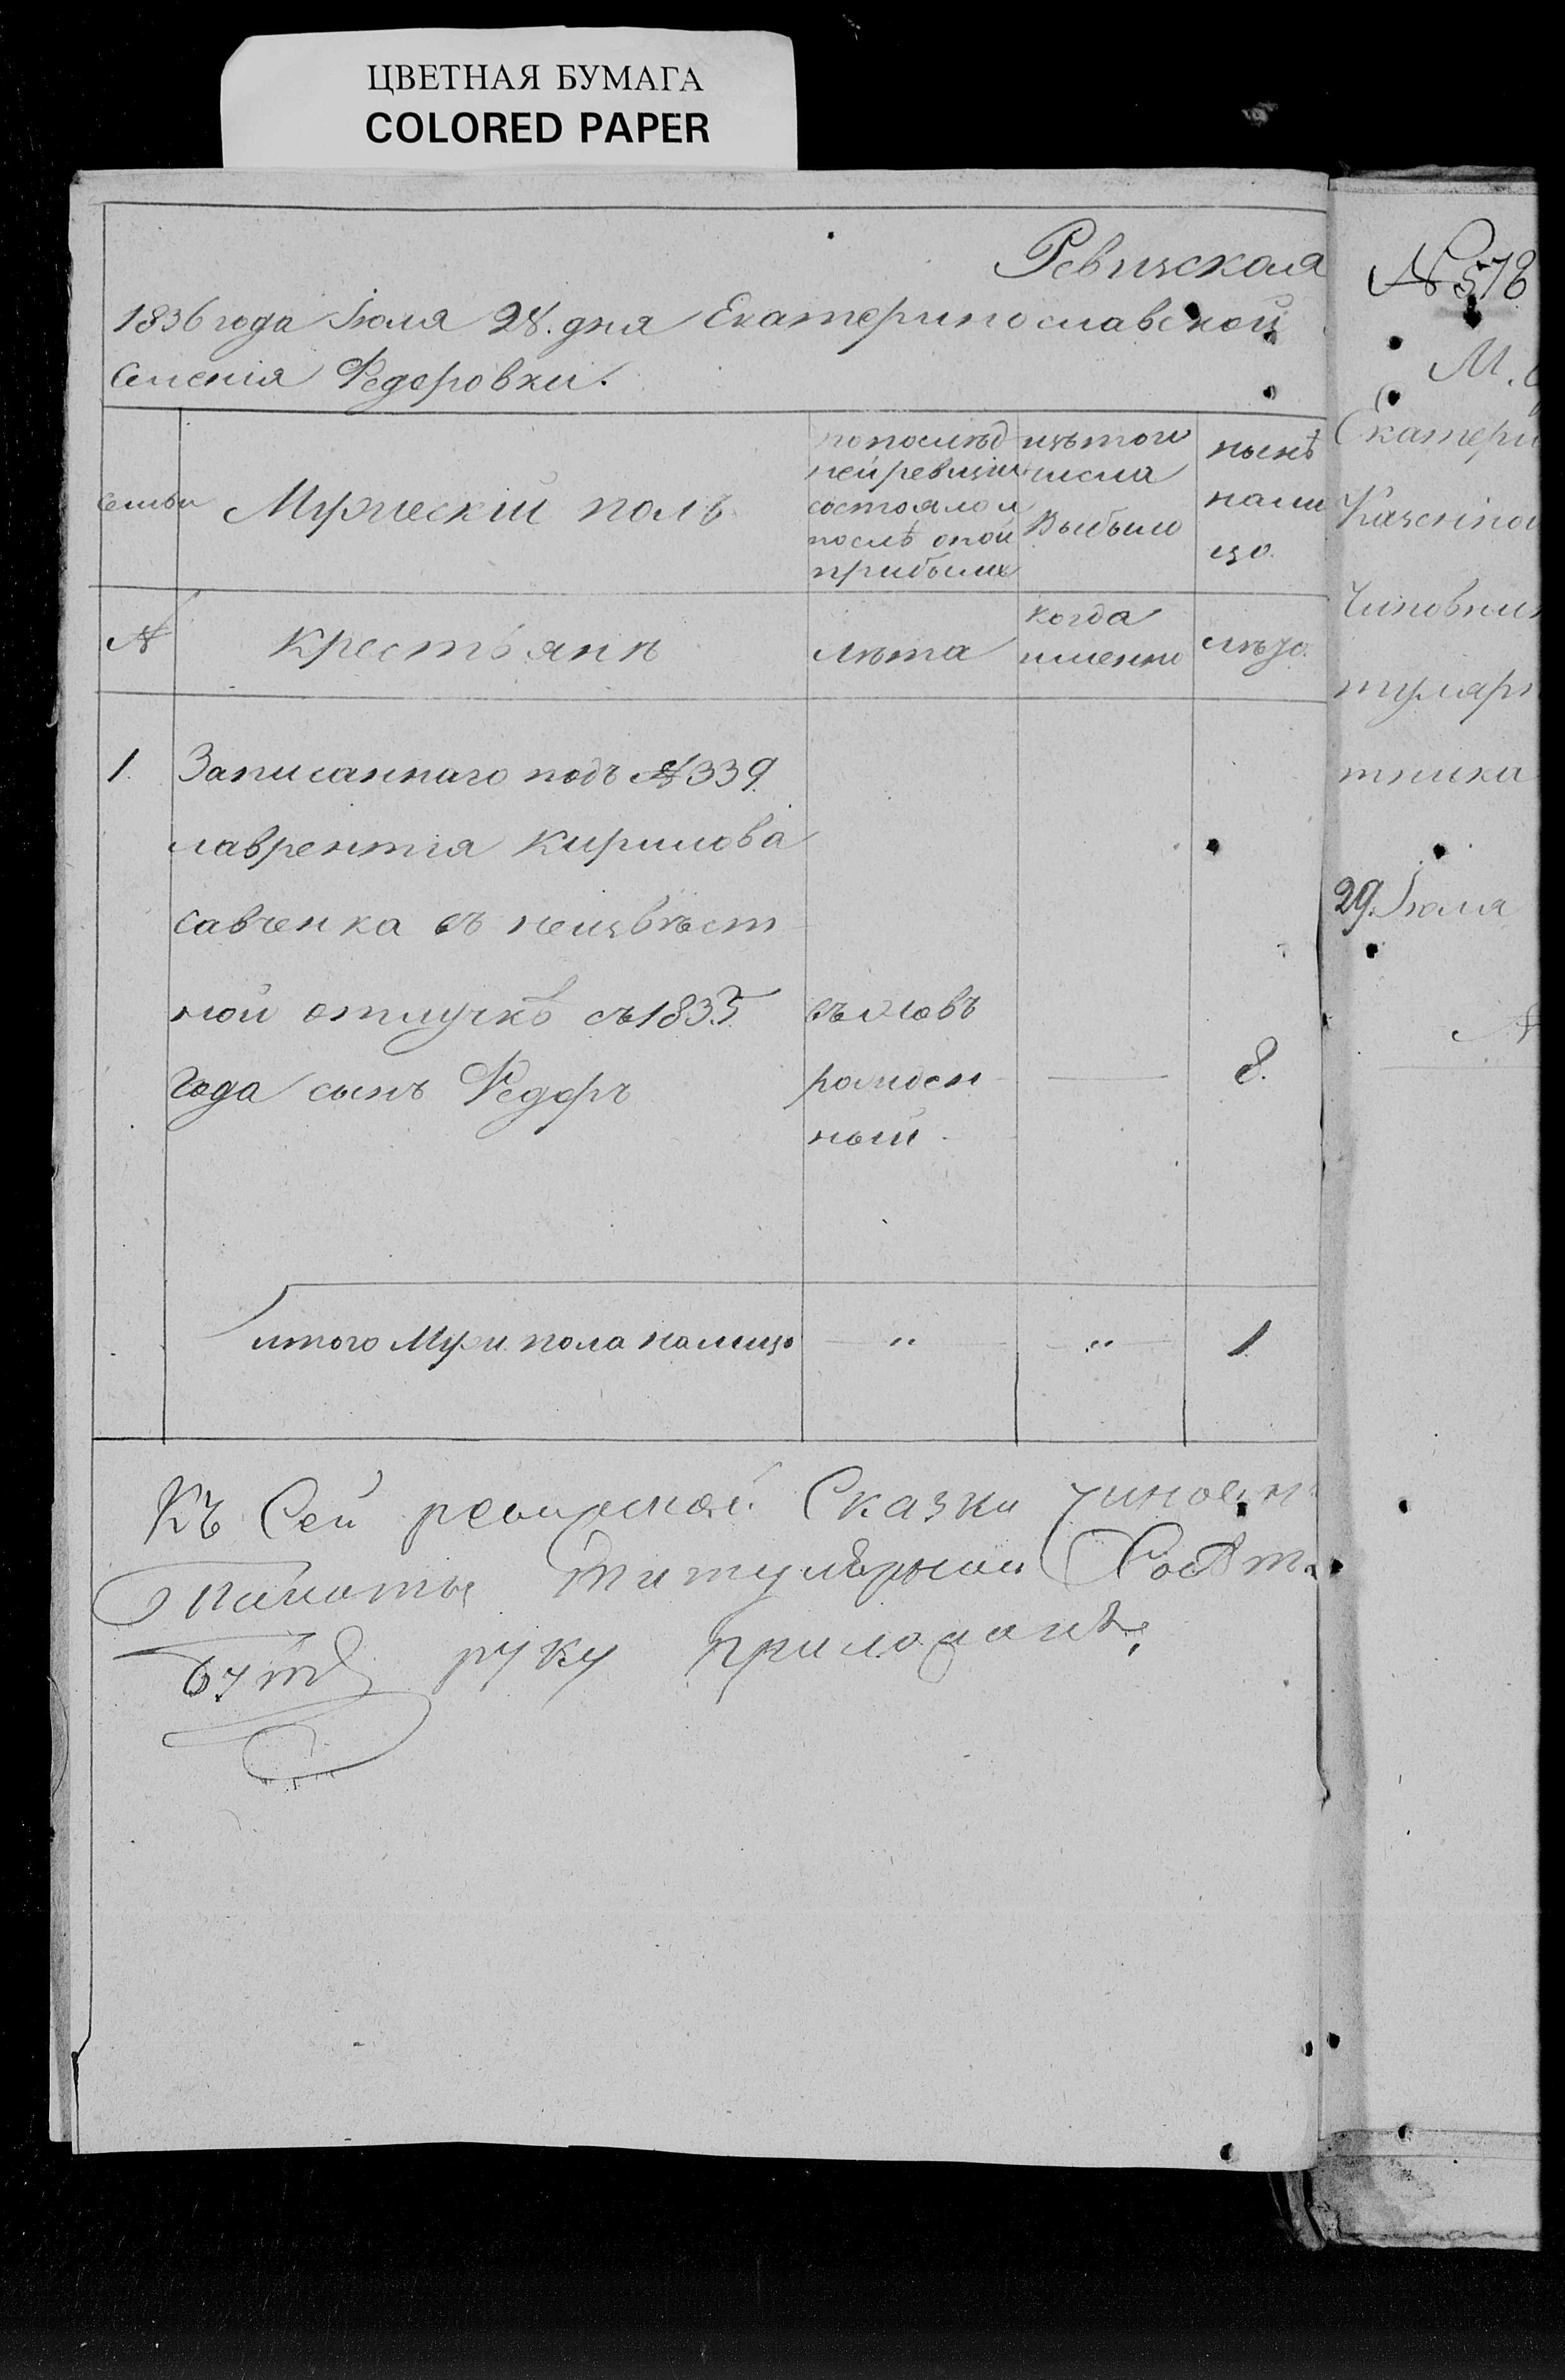 ЦВЕТНАЯ БУМАГА
COLORED PAPER
Ревизская
1836 года Іюля 28. дня Екатеринославской
селенія Федоровки.
семьи
Мужескій полъ
попослѣд
ней ревизіи
состояло и
послѣ оной
прибыли
изътого
числа
Выбыло
нынѣ
нали
цо.
№
Крестьянѣ
лѣта
когда
именно
лѣта
1.
Записаннаго подъ № 339
лаврентія Кирилова
савченка въ неизвѣст
ной отлучкѣ съ 1835
года сынъ Федоръ
вновь
рожден
ный
8.
итого Муж. пола налицо
„
„
1
Къ Сей ревизской Сказки чиновн
Титулярный Совѣт
руку приложилъ
№ 578
М.
Екатери
Казенной
Чиновник
тулярн
тника
29. Іюля